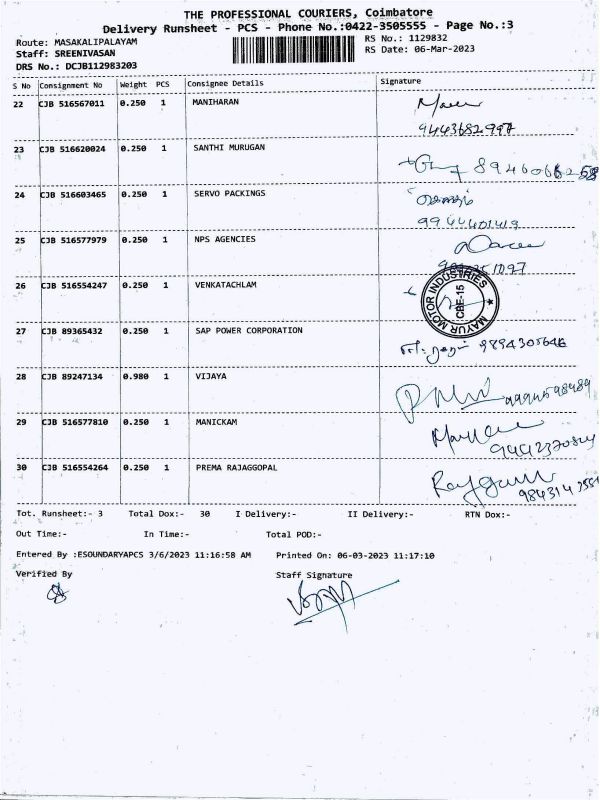 THE PROFESSIONAL COURIERS, Coimbatore
Delivery Runsheet - PCS - Phone No.:0422-3505555 - Page No.:3
Route: MASAKALIPALAYAM
RS No.: 1129832
Staff: SREENIVASAN
RS Date: 06-Mar-2023
DRS No.: DCJB112983203
S No Consignment No Weight PCS Consignee Details Signature
22 CJB 516567011 0.250 1 MANIHARAN
9443682997
23 CJB 516620024 0.250 1 SANTHI MURUGAN
24 CJB 516603465 0.250 1 SERVO PACKINGS
9944401419
25 CJB 516577979 0.250 1 NPS AGENCIES
26 CJB 516554247 0.250 1 VENKATACHLAM
MAYUR MOTOR INDUSTRIES
CBE-15
27 CJB 89365432 0.250 1 SAP POWER CORPORATION
9894305646
28 CJB 89247134 0.980 1 VIJAYA
29 CJB 516577810 0.250 1 MANICKAM
30 CJB 516554264 0.250 1 PREMA RAJAGGOPAL
Tot. Runsheet:- 3 Total Dox:- 30 I Delivery:- II Delivery:- RTN Dox:-
Out Time:- In Time:- Total POD:-
Entered By :ESOUNDARYAPCS 3/6/2023 11:16:58 AM Printed On: 06-03-2023 11:17:10
Verified By Staff Signature